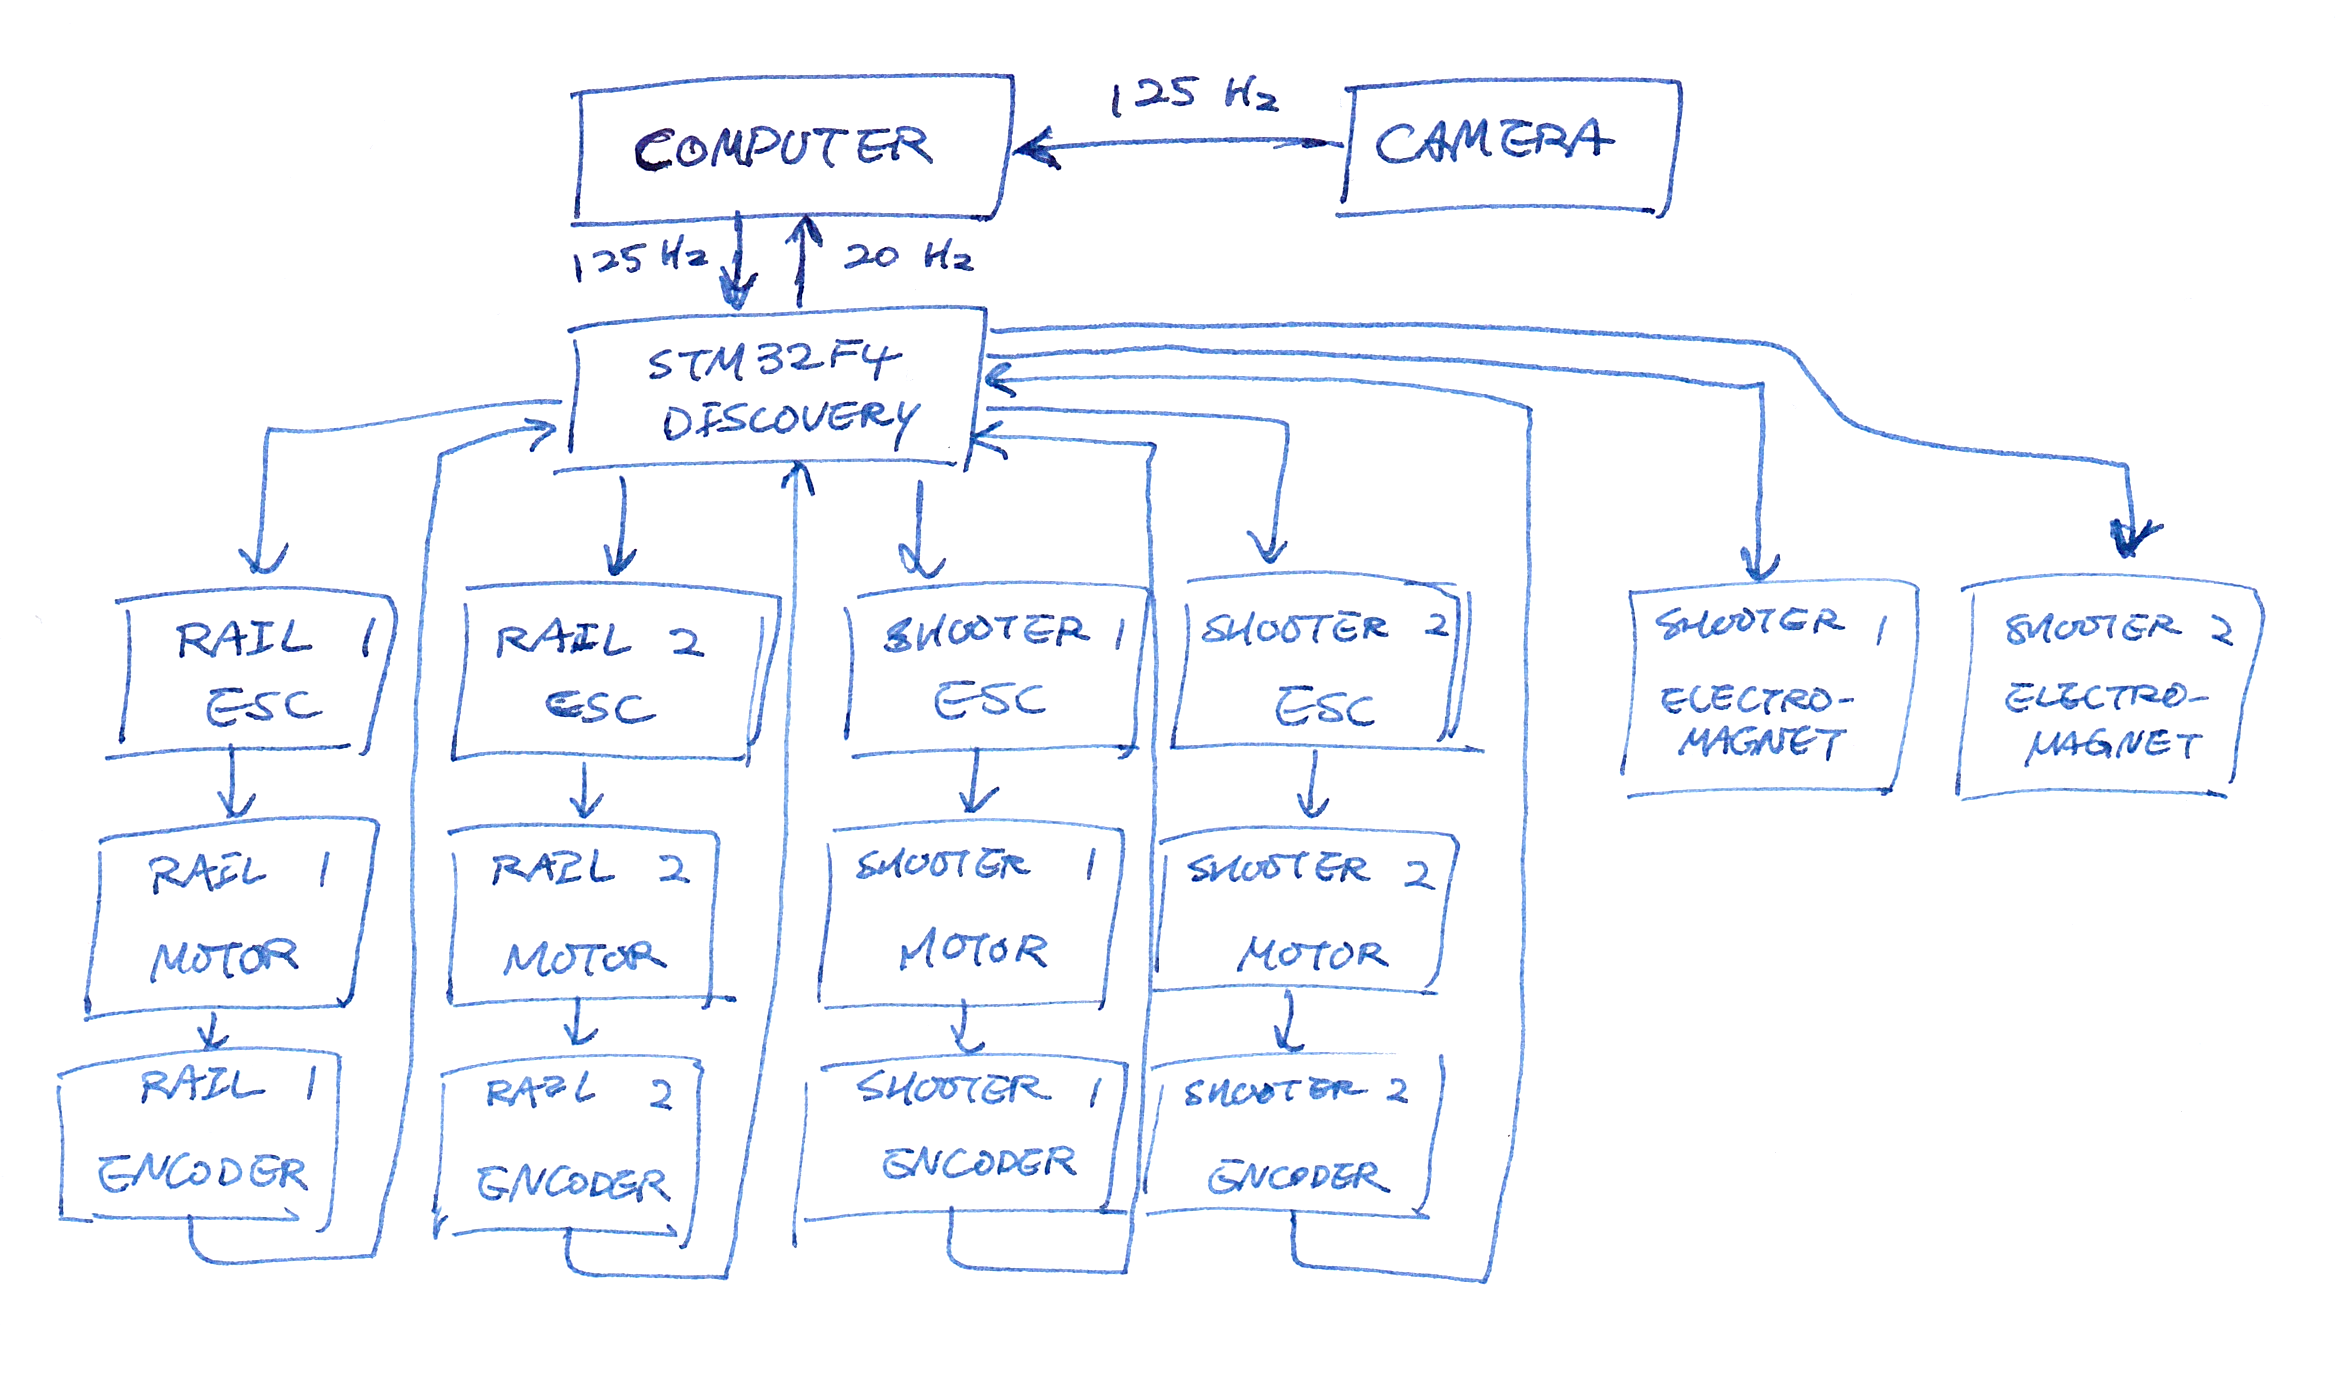 125 Hz
COMPUTER
CAMERA
125 Hz
20 Hz
STM32F4
DISCOVERY
RAIL 1
ESC
RAIL 2
ESC
SHOOTER 1
ESC
SHOOTER 2
ESC
SHOOTER 1
ELECTRO-
MAGNET
SHOOTER 2
ELECTRO-
MAGNET
RAIL 1
MOTOR
RAIL 2
MOTOR
SHOOTER 1
MOTOR
SHOOTER 2
MOTOR
RAIL 1
ENCODER
RAIL 2
ENCODER
SHOOTER 1
ENCODER
SHOOTER 2
ENCODER